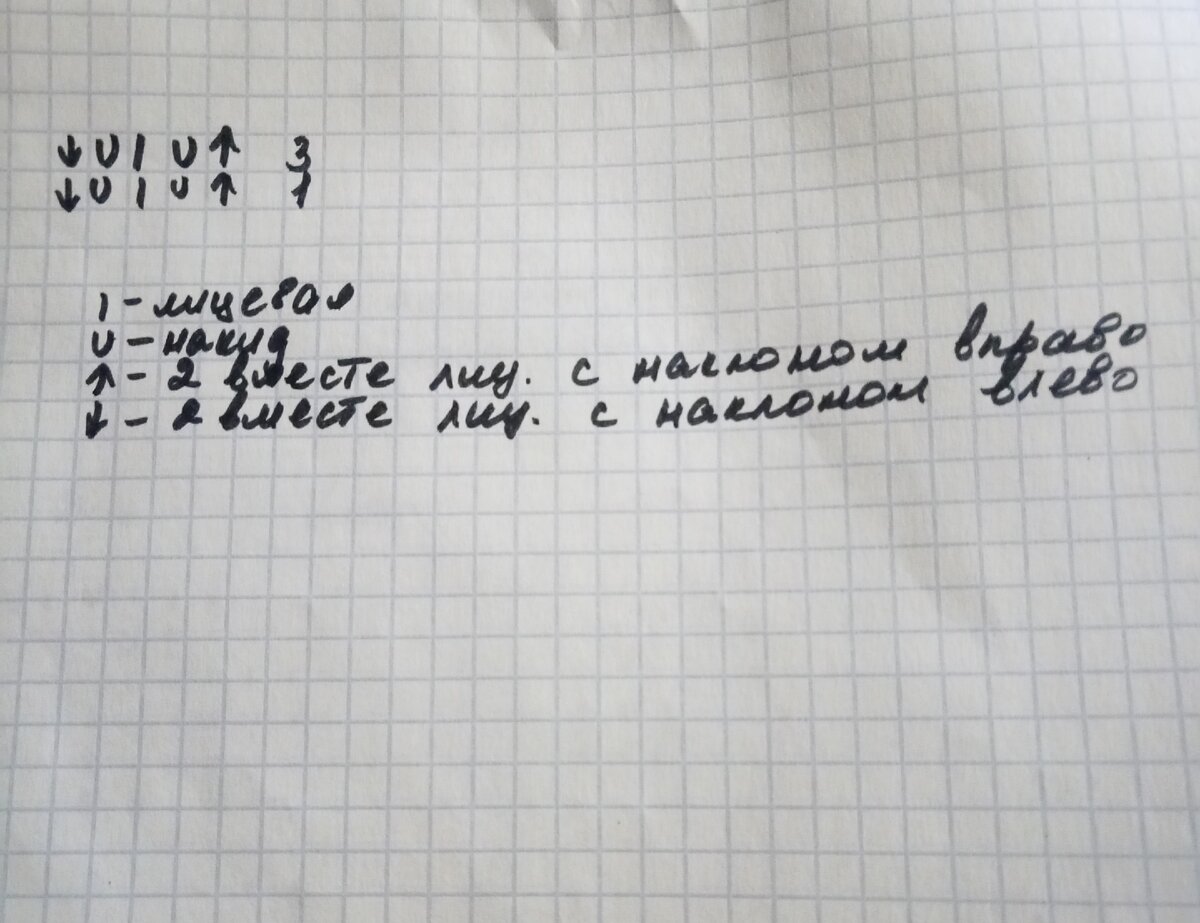 ↓ U | U ↑ 3
↓ U | U ↑ 1
| - лицевая
U - накид
↑ - 2 вместе лиц. с наклоном вправо
↓ - 2 вместе лиц. с наклоном влево